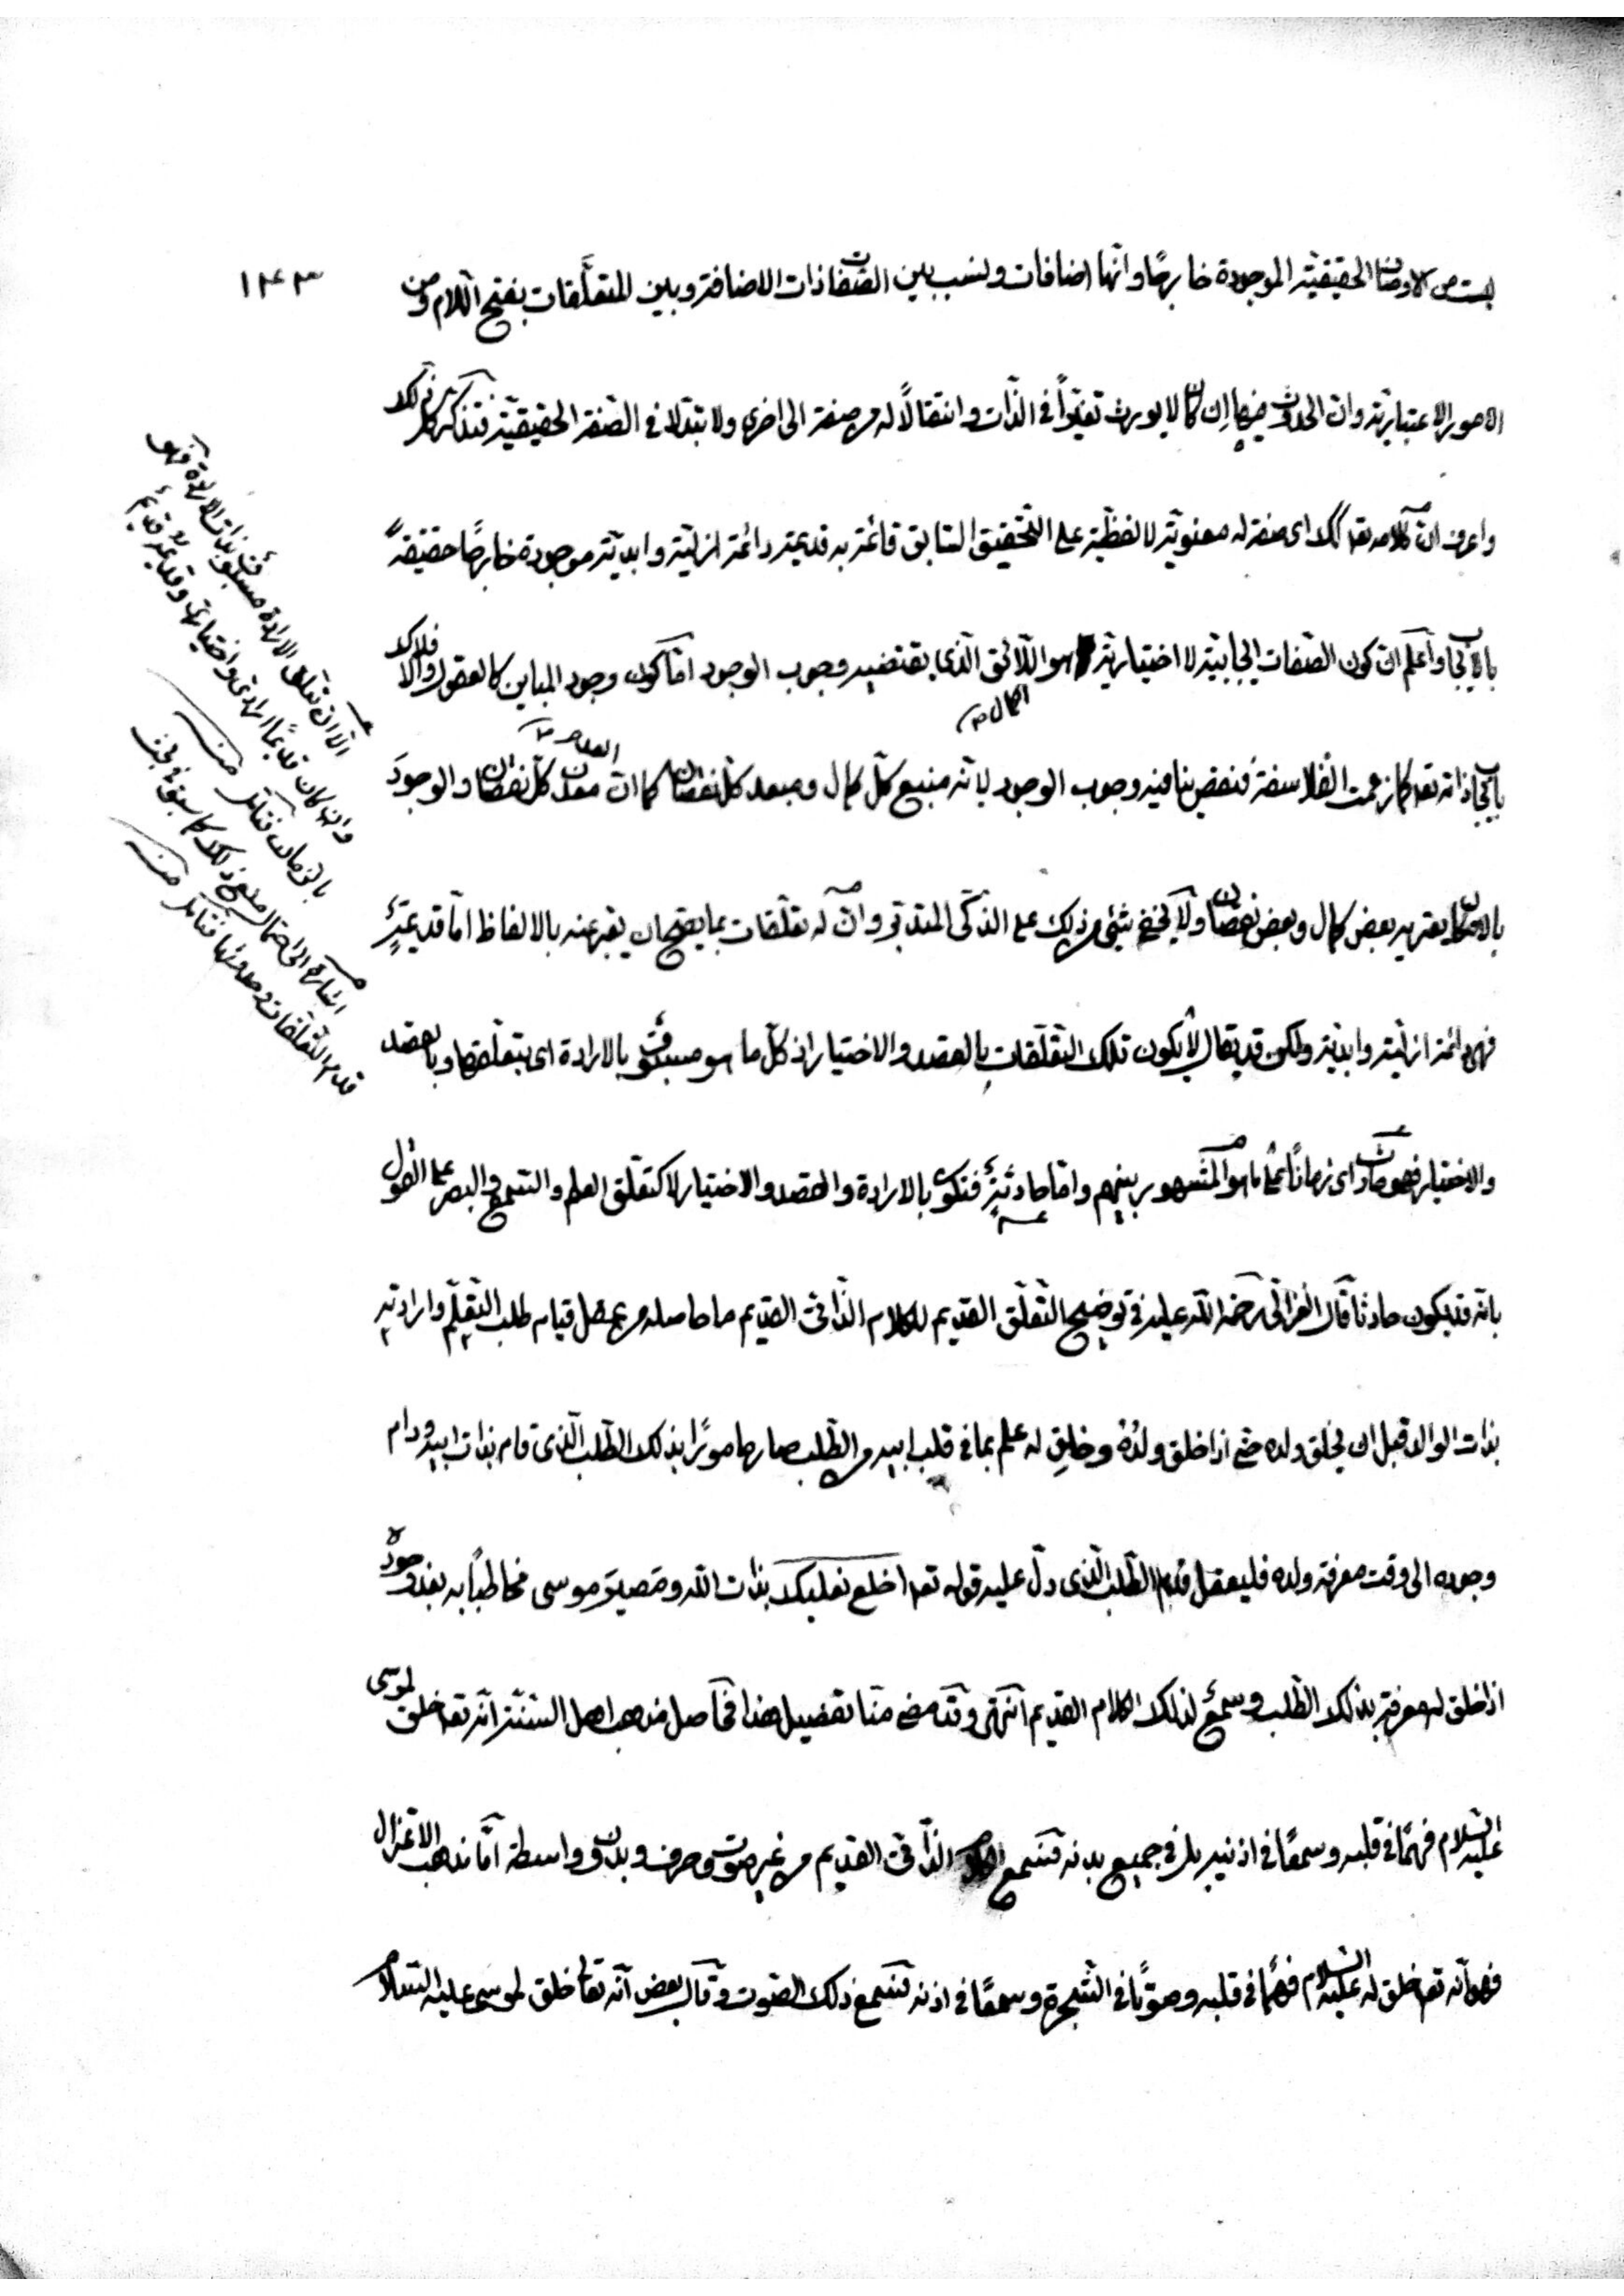 ١٤٣
ليست من الاوصاف الحقيقيّة الموجودة خارجًا وانّها اضافات ونسب بين الصّفات ذات الاضافة وبين المتعلَّقات بفتح اللام ومن
الامور الاعتباريّة وان الحدوث فيها ان كان لا يورث تغيّرًا في الذّات وانتقالًا له من صفة الى اخرى ولا تبدّلا في الصّفة الحقيقيّة فتذكر كلّ ذلك
واعرف انّ كلامه تعالى اى صفة له معنويّة لا لفظيّة على التّحقيق السّابق قائمة به قديمة دائمة ازليّة وابديّة موجودة خارجًا حقيقةً
بالايجاب واعلم ان كون الصّفات ايجابيّة لا اختياريّة هو اللّائق الّذى يقتضيه وجوب الوجود امّا كون وجود المباين كالعقول والافلاك
بايجاب ذاته تعالى كما زعمت الفلاسفة فنقص ينافيه وجوب الوجود لانّه منبع كلّ كمال ومبعد كلّ نقصان كما انّ العدم معدن كلّ نقصان والوجود
بالامكان يعتريه بعض كمال وبعض نقصان ولا يخفى شئ من ذلك على الذّكى المتدبّر وانّ له تعلّقات بما يصح ان يعبر عنه بالالفاظ امّا قديمةٌ
فهى دائمة ازليّة وابديّة ولكن قد يقال لا يكون تلك التعلّقات بالقصد والاختيار اذ كلّ ما هو مسبوق بالارادة اى بتعلّقها وبالقصد
والاختيار فهو حادث اى زمانًا على ما هو المشهور بينهم وامّا حادثةٌ فتكون بالارادة والقصد والاختيار لا كتعلّق العلم والسّمع والبصر على القول
بانّه قد يكون حادثا قال الغزالى رحمة الله عليه في توضيح التعلّق القديم للكلام الذّاتى القديم ما حاصله من يعقل قيام طلب التعلّم وارادته
بذات الوالد قبل ان يخلق ولده حتى اذا خلق ولدُهُ وخلق له علم بما في قلب ابيه من الطّلب صار مامورًا بذلك الطّلب الّذى قام بذات ابيه ودام
وجوده الى وقت معرفة ولده فليعقل قدم الطّلب الّذى دلّ عليه قوله تعالى اخلع نعليك بذات الله ومصير موسى مخاطبًا به بعد وجوده
اذ اخلق له معرفة بذلك الطّلب وسمع لذلك الكلام القديم انتهى وقد مضى منّا تفصيل هذا فحاصل مذهب اهل السّنّة انّه تعالى خلق لموسى
عليه السّلام فهمًا في قلبه وسمعًا في اذنيه بل في جميع بدنه فسمع الكلام الذّاتى القديم من غير صوت وحرف وبدون واسطة امّا مذهب الاعتزال
فهو انّه تعالى خلق له عليه السّلام فهمًا في قلبه وصوتًا في الشّجرة وسمعًا في اذنه فسمع ذلك الصّوت وقال بعض انّه تعالى خلق لموسى عليه السّلام
الّا ان تعلق الارادة مسبوق بذات الارادة فهو
وان كان قديمًا ارادى واختيارى وقديم غير قديم
بالزمان فتأمّل منه
اشارة الى احتمال منع ذلك كما سبق في بحث
قدم التعلّقات وحدوثها فتأمّل منه